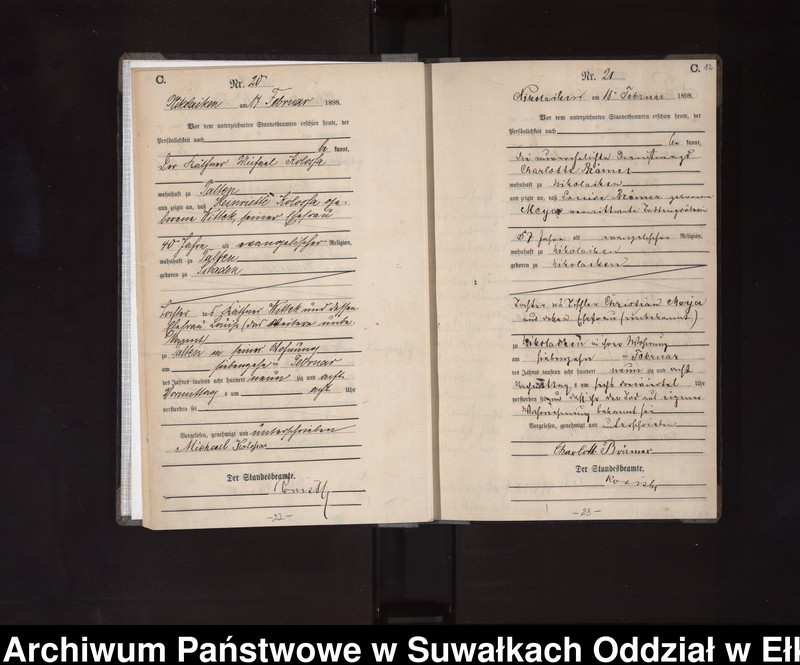 C.
Nr. 20
Nikolaiken am 17 Februar 1898.
Vor dem unterzeichneten Standesbeamten erschien heute, der
Persönlichkeit nach
be kannt,
Der Käthner Michael Kolossa
wohnhaft zu Talten
und zeigte an, daß Henriette Kolossa ge-
borene Wittek, seiner Ehefrau
40 Jahre alt evangelischer Religion,
wohnhaft zu Talten
geboren zu
Tochter des Käthner Wittek und dessen
Ehefrau Louise (das Weitere unbe-
kannt)
zu Talten in seiner Wohnung
am siebenzehn ten Februar
des Jahres tausend acht hundert neun zig und acht
Vormittag s um acht Uhr
verstorben sei
Vorgelesen, genehmigt und unterschrieben
Michael Kolossa
Der Standesbeamte.
—22—
C. 12
Nr. 21
Nikolaiken am 18 Februar 1898.
Vor dem unterzeichneten Standesbeamten erschien heute, der
Persönlichkeit nach
be kannt,
die unverehelichte Dienstmagd
Charlotte Brämer
wohnhaft zu Nikolaiken
und zeigte an, daß Brämer geborene
Meya
57 Jahre alt evangelischer Religion,
wohnhaft zu Nikolaiken
geboren zu Nikolaiken
Tochter des Tischler Christian Meya
und dessen Ehefrau (unbekannt)
zu Nikolaiken in ihrer Wohnung
am siebenzehn ten Februar
des Jahres tausend acht hundert neun zig und acht
Nachmittag s um sechs Uhr
verstorben sei und daß ihr der Tod aus eigener
Wahrnehmung bekannt sei
Vorgelesen, genehmigt und unterschrieben
Charlotte Brämer
Der Standesbeamte.
—23—
Archiwum Państwowe w Suwałkach Oddział w Ełk